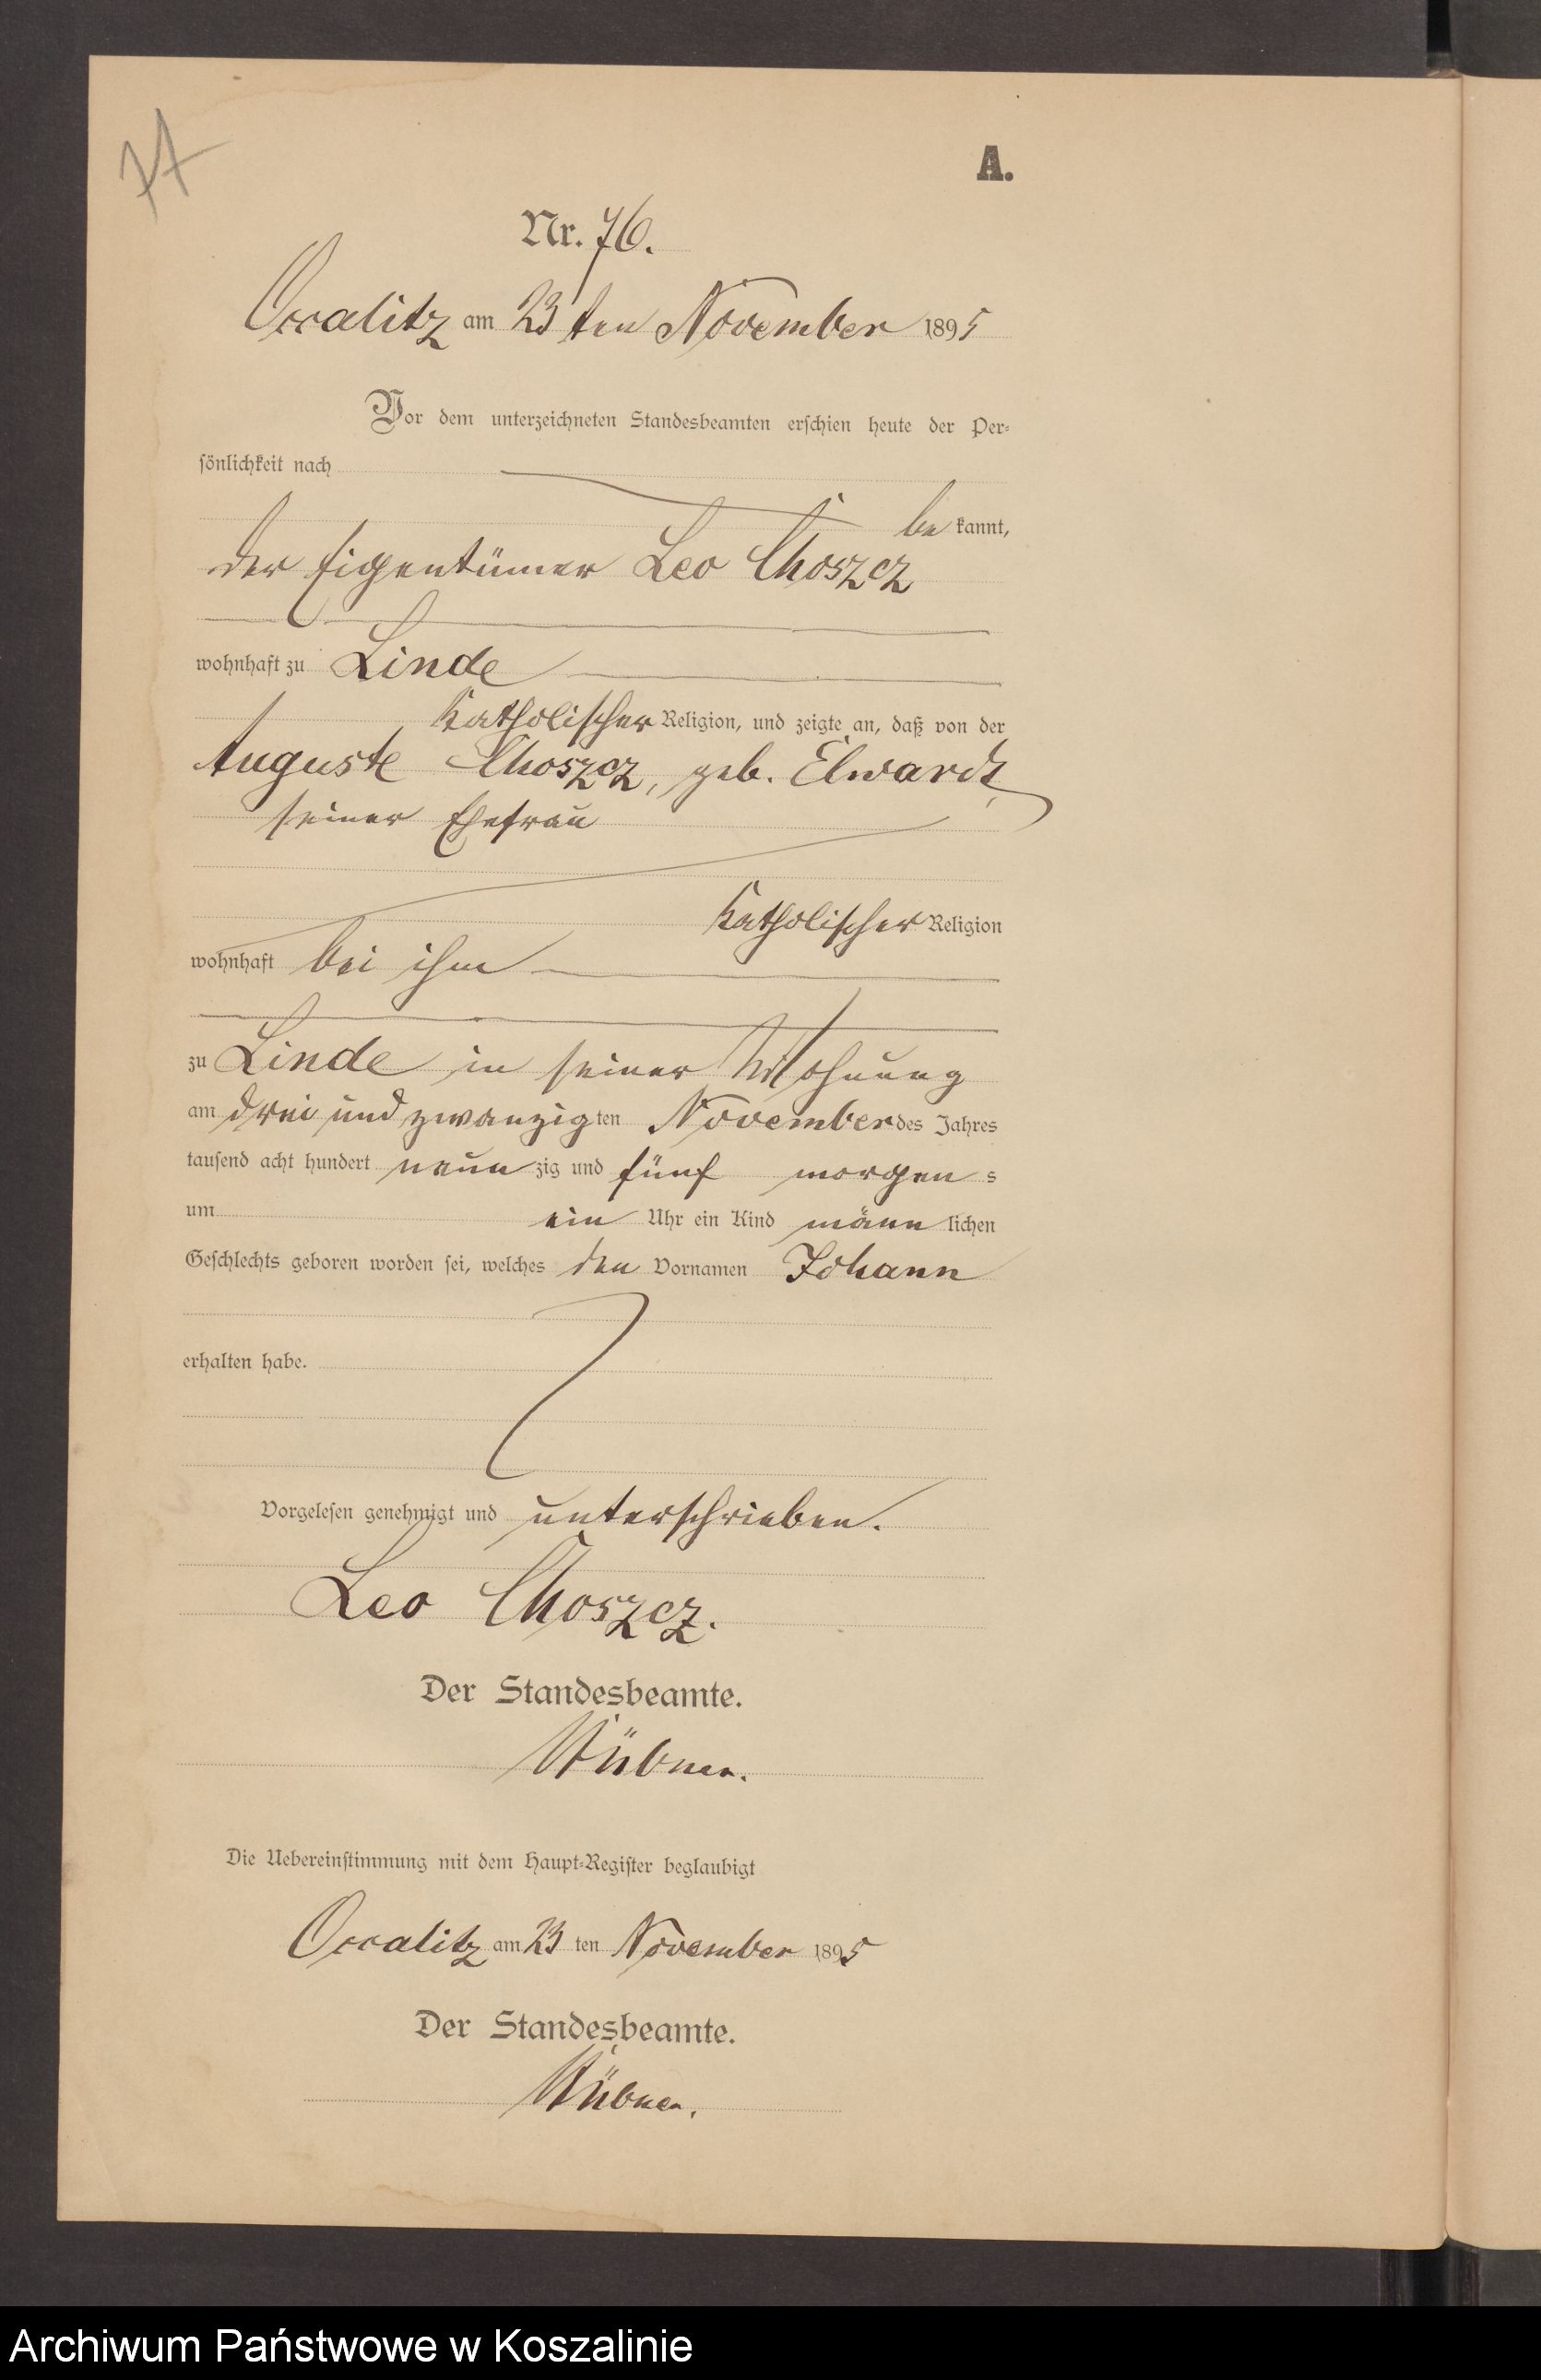 77
A.
Nr. 76.
Occalitz am 23ten November 1895
Vor dem unterzeichneten Standesbeamten erschien heute der Per-
sönlichkeit nach
be kannt,
der Eigentümer Leo Choszcz
wohnhaft zu Linde
katholischer Religion, und zeigte an, daß von der
Auguste Choszcz, geb. Elwardt,
seiner Ehefrau
katholischer Religion
wohnhaft bei ihm
zu Linde in seiner Wohnung
am drei und zwanzig ten November des Jahres
tausend acht hundert neun zig und fünf morgen s
um ein Uhr ein Kind männ lichen
Geschlechts geboren worden sei, welches den Vornamen Johann
erhalten habe.
Vorgelesen genehmigt und unterschrieben.
Leo Choszcz.
Der Standesbeamte.
Die Uebereinstimmung mit dem Haupt-Register beglaubigt
Occalitz am 23 ten November 1895
Der Standesbeamte.
Archiwum Państwowe w Koszalinie